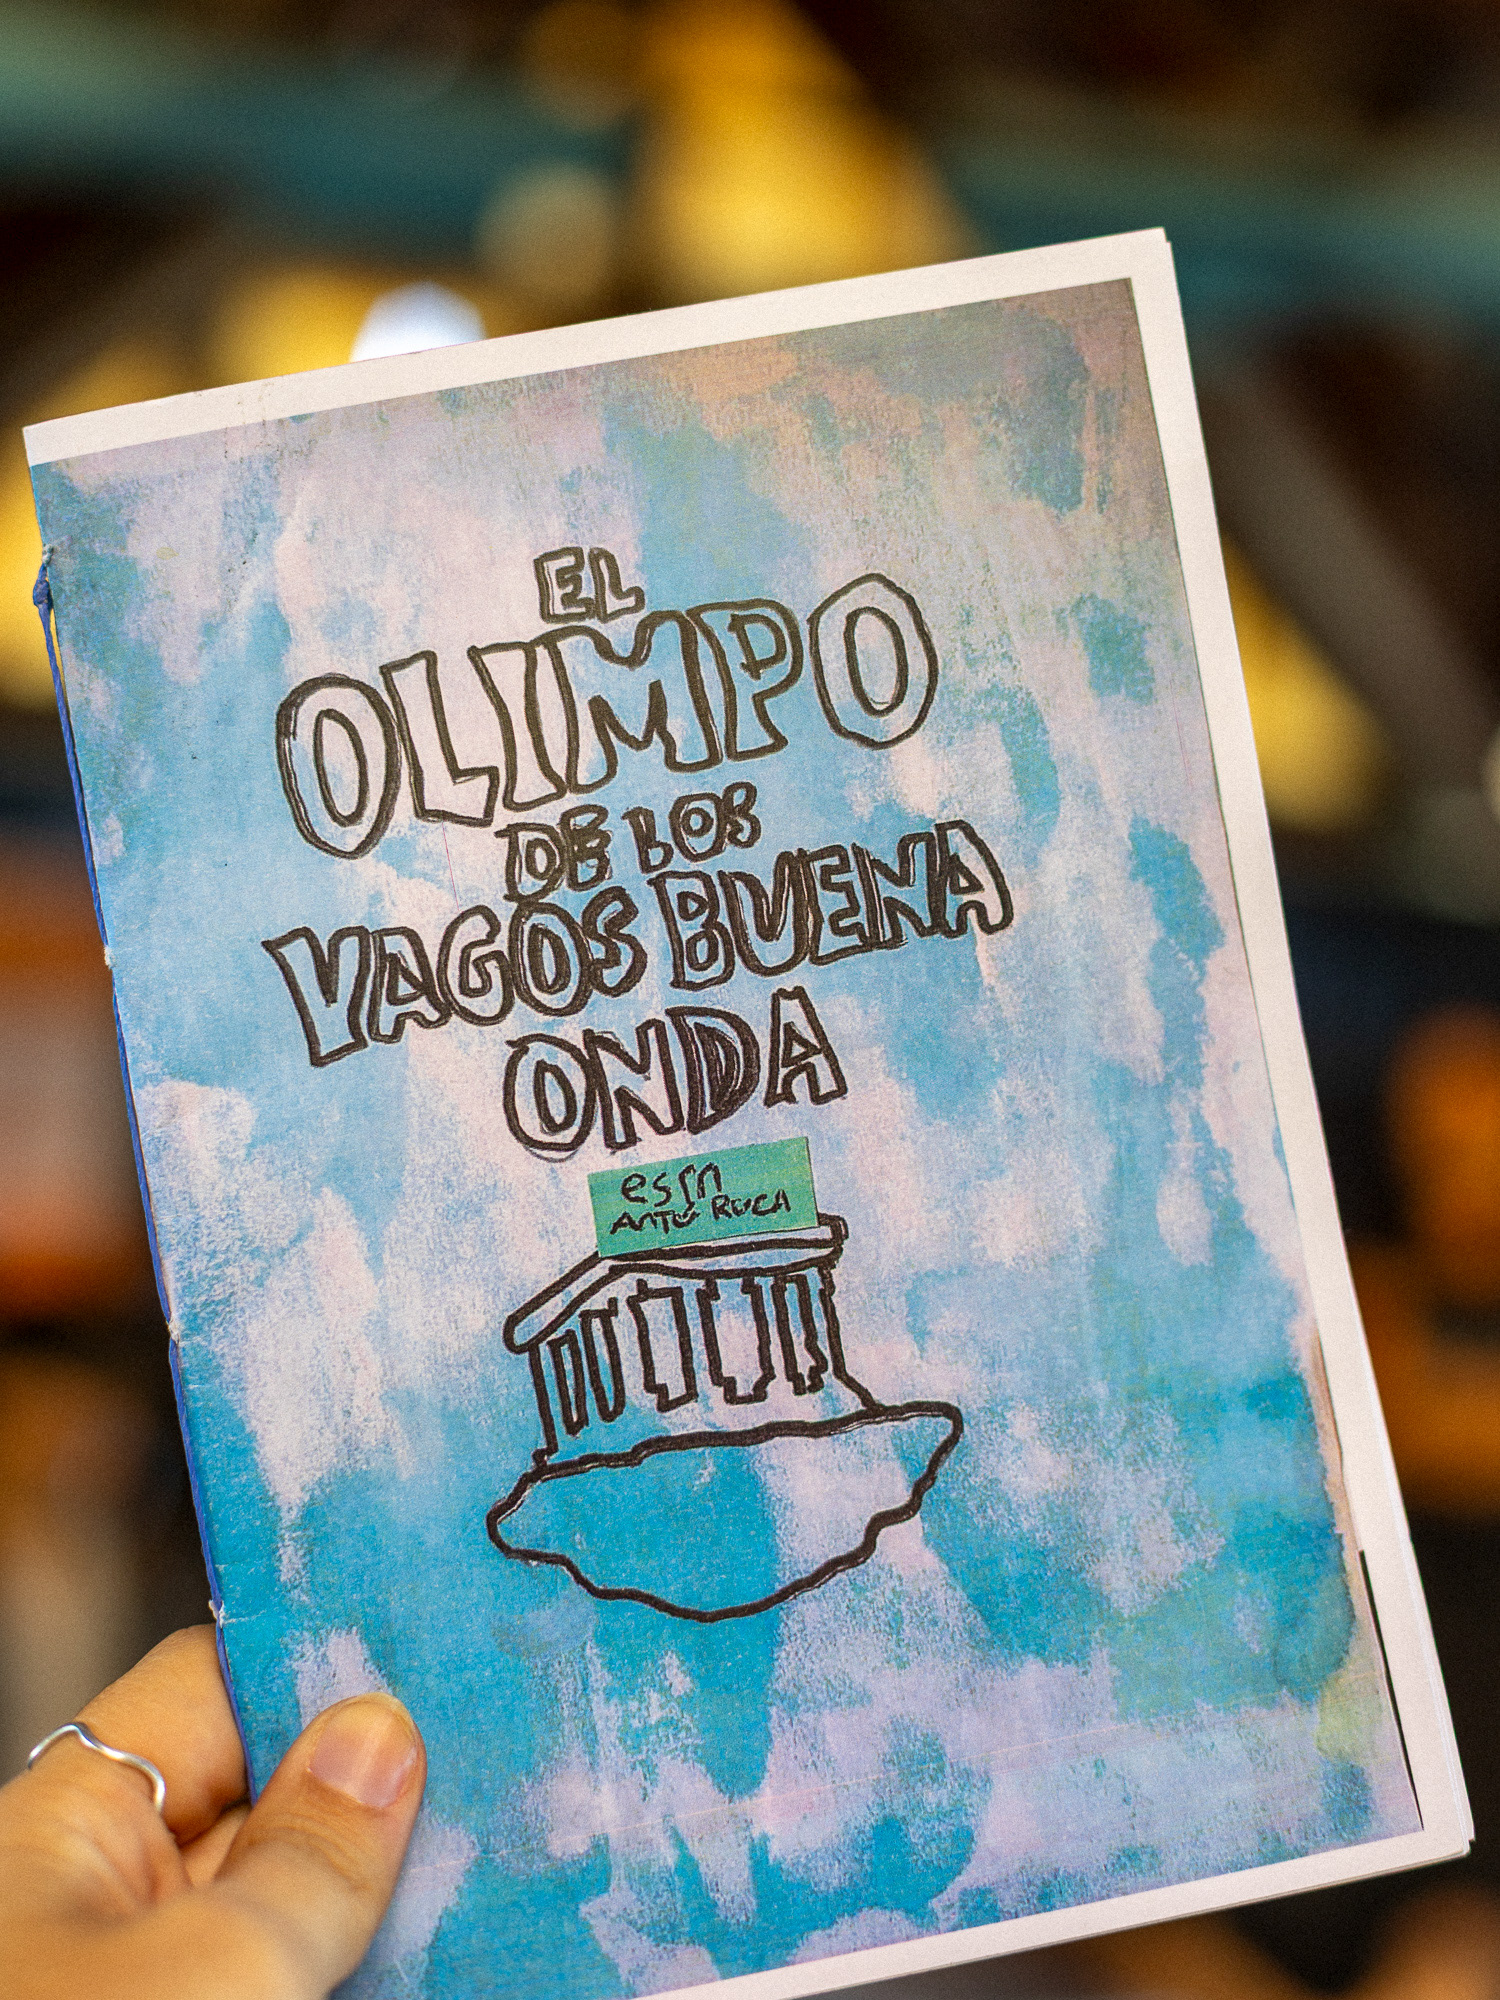 EL
OLIMPO
DE LOS
VAGOS BUENA
ONDA
ANTO ROCA